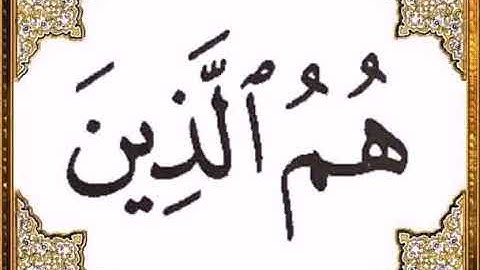 هُمُ ٱلَّذِينَ